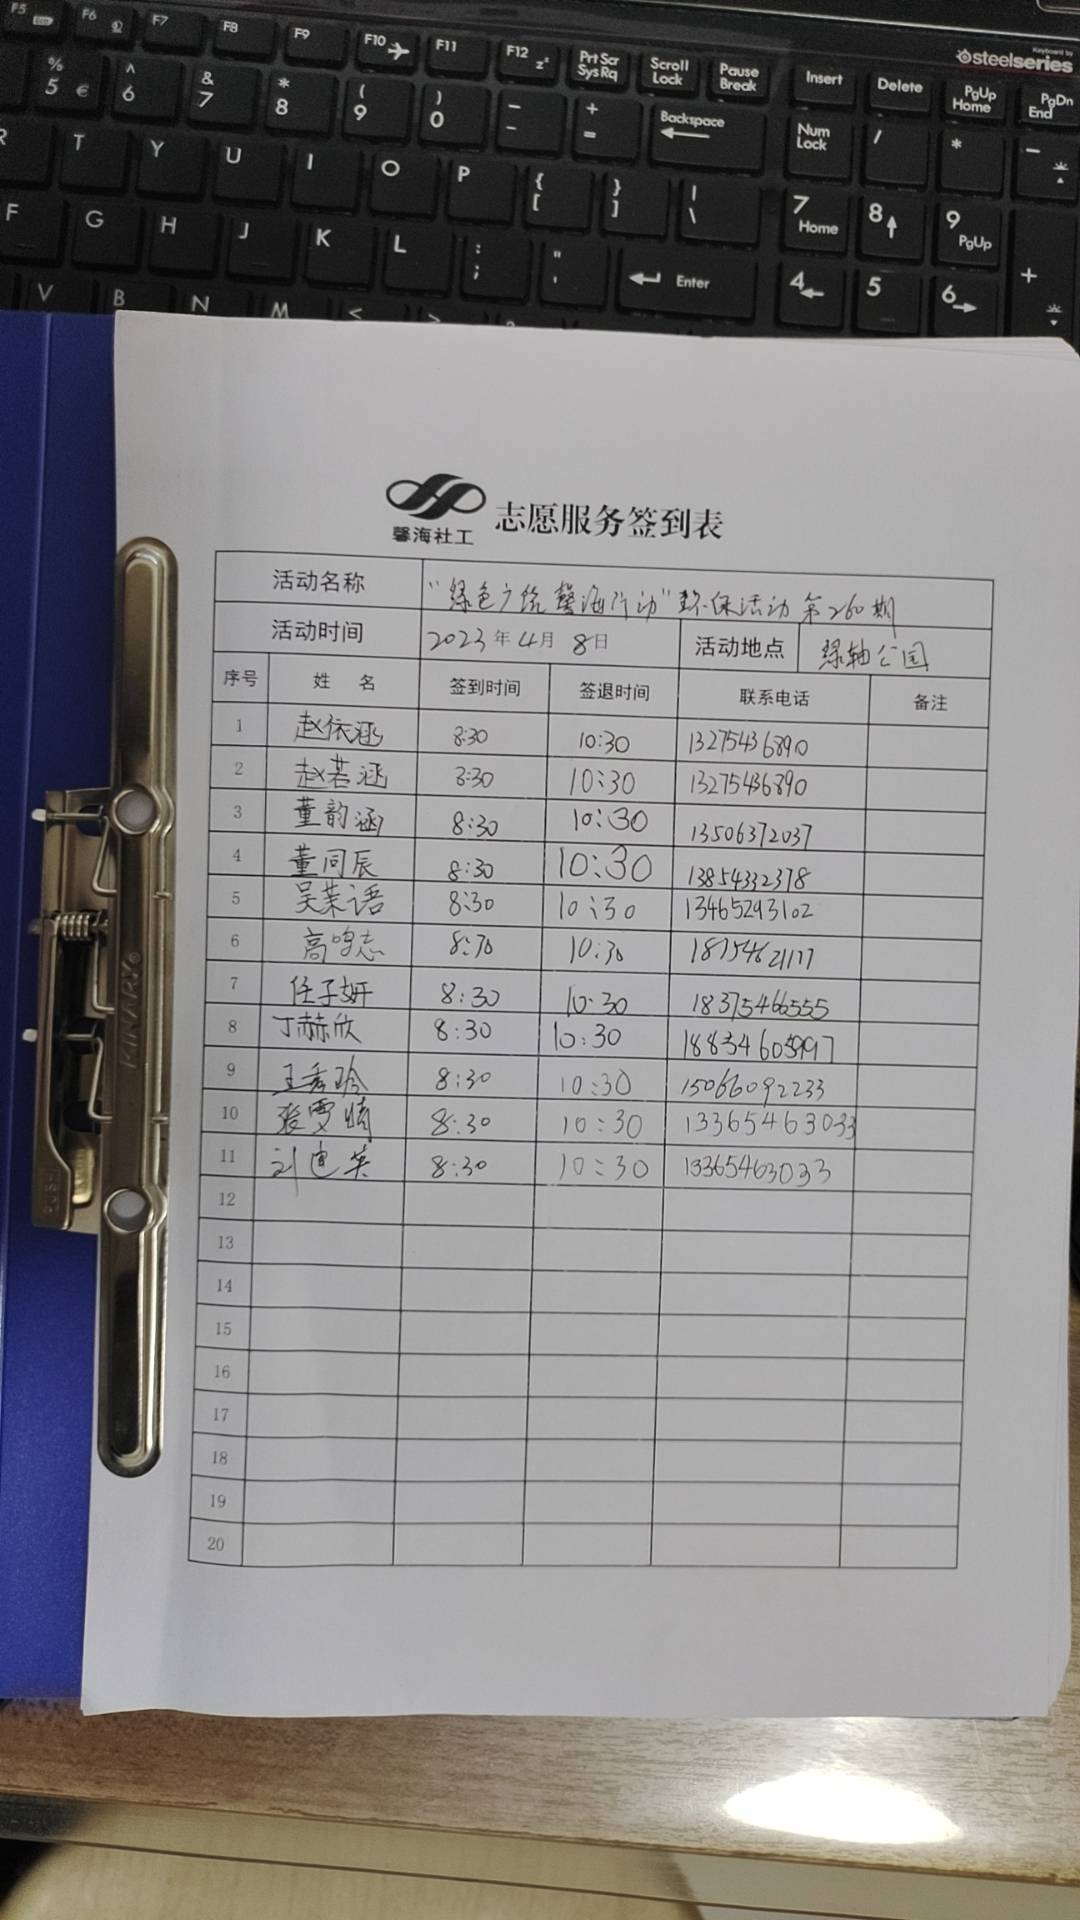 F5 F6 F7 F8 F9 F10 F11 F12 Prt Scr Sys Rq Scroll Lock Pause Break Insert Delete PgUp Home PgDn End
Keyboard by
steelseries
% 5 € ^ 6 & 7 * 8 ( 9 ) 0 - - + = Backspace Num Lock / * -
R T Y U I O P { [ } ] | \ 7 Home 8 9 PgUp
F G H J K L : ; " ' Enter 4 5 6 +
V B N M < >
馨海社工
志愿服务签到表
活动名称 "绿色广饶 馨海行动"环保活动 第260期
活动时间 2023年4月8日 活动地点 绿轴公园
序号 姓 名 签到时间 签退时间 联系电话 备注
1 赵依涵 8:30 10:30 13275436890
2 赵若涵 8:30 10:30 13275436890
3 董韵涵 8:30 10:30 13506372037
4 董同辰 8:30 10:30 13854332378
5 吴茉语 8:30 10:30 13465293102
6 高鸣志 8:30 10:30
7 任子妍 8:30 10:30 18375466555
8 丁赫欣 8:30 10:30
9 王秀玲 8:30 10:30 15066092233
10 张雯晴 8:30 10:30 133654463033
11 刘迪英 8:30 10:30 13365463033
12
13
14
15
16
17
18
19
20
KINARY®
PUSH